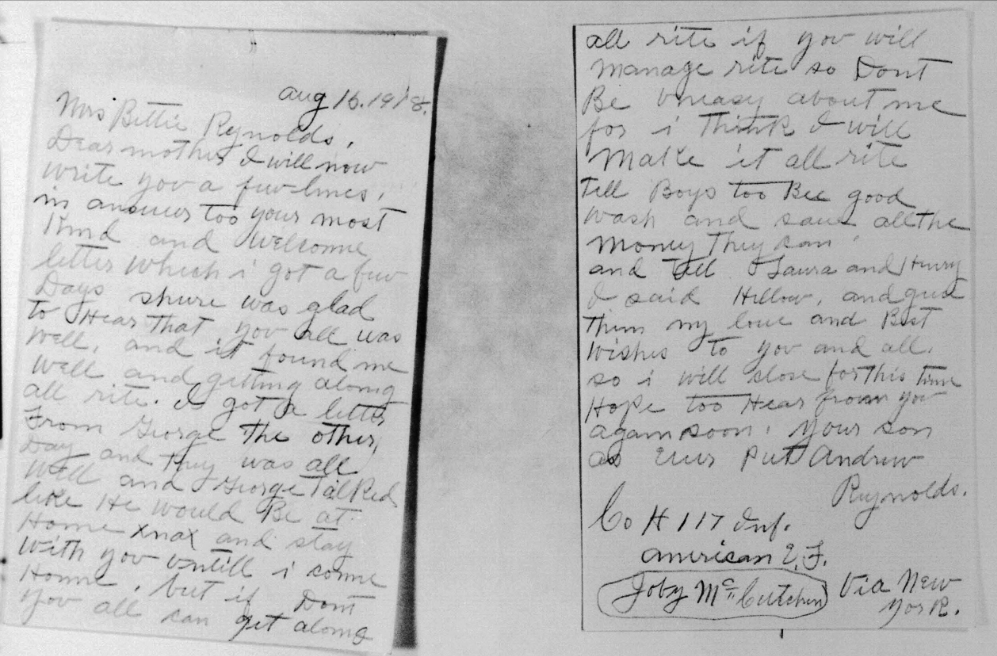 aug 16. 1918.
Mrs Bettie Reynolds,
Dear mother I will now
write you a few lines,
in answer too your most
Kind and welcome
letter which i got a few
Days shure was glad
to Hear that you all was
well, and it found me
well and getting along
all rite. I got a letter
From George the other
Day and they was all
Well and George Talked
like He would Be at
Home xmax and stay
With you untill i come
Home, but if Dont
you all can get along
all rite if you will
manage rite so Dont
Be uneasy about me
for i think I will
make it all rite
Tell Boys too Bee good
wash and save all the
money they can.
and Tell Laura and Henry
I said Hellow, and give
them my love and Best
Wishes to you and all.
so i will close for this time
Hope too Hear from you
again soon. Your son
as Ever Pvt Andrew
Reynolds.
Co H 117 Inf.
american E. F.
Joby McCutchen Via New
York.